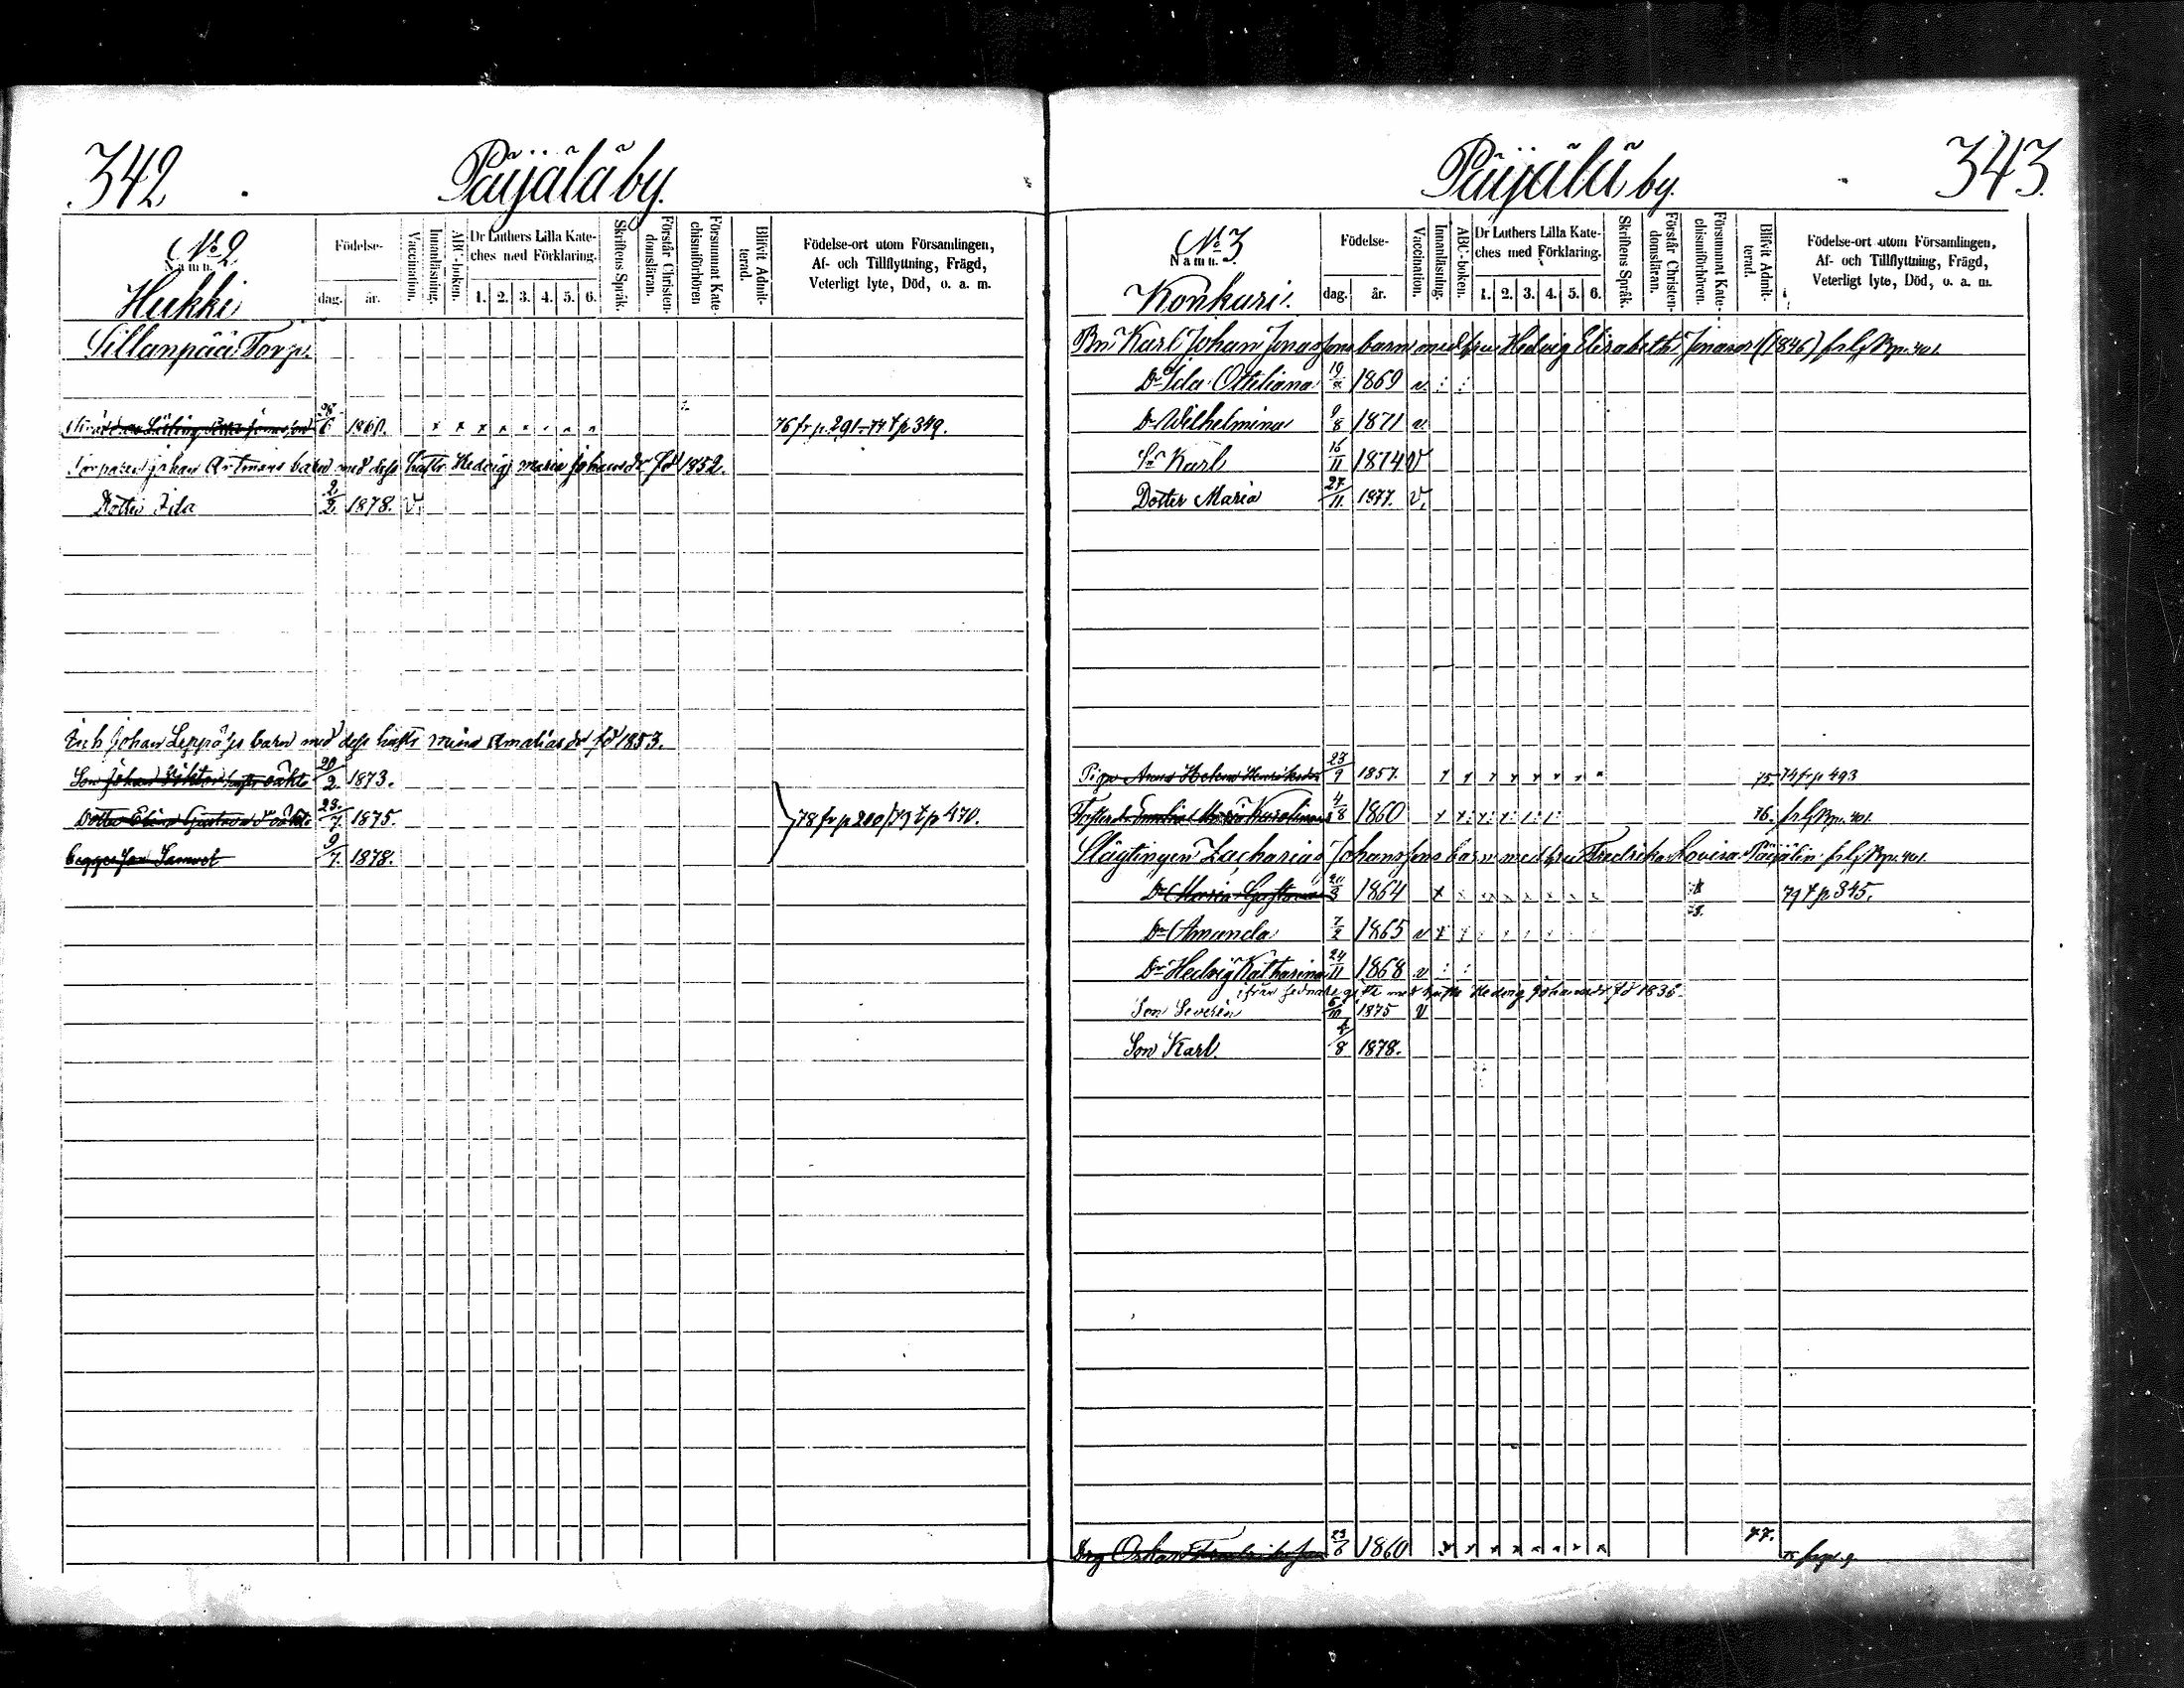 342
Päijälä by.
No 2
Namn.
Hukki
Födelse-
dag.
år.
Vaccination.
Innanläsning.
ABC-boken.
Dr Luthers Lilla Kate-
ches med Förklaring.
1. 2. 3. 4. 5. 6.
Skriftens Språk.
Förstår Christen-
domsläran.
Försummat Kate-
chismiförhören
Blifvit Admit-
terad.
Födelse-ort utom Församlingen,
Af- och Tillflyttning, Frägd,
Veterligt lyte, Död, o. a. m.
Sillanpää Torp.
76 fr p 291 - 77 t p 349.
Torparen Johan Artmans barn med dess hustr Hedvig Maria Johansdr fd 1852.
Dotter Ida 2/2 1878. v.
Erich Johan Leppä's barn med dess hustr Amaliasdr fd 1853.
Son Johan Viktor 20/2 1873.
Dotter Elina Gustava 23/7 1875. 78 fr p 210/79 t p 470.
Samuel 9/7 1878.
Päijälä by.
343.
No 3
Namn.
Konkuri.
Födelse-
dag.
år.
Vaccination.
Innanläsning.
ABC-boken.
Dr Luthers Lilla Kate-
ches med Förklaring.
1. 2. 3. 4. 5. 6.
Skriftens Språk.
Förstår Christen-
domsläran.
Försummat Kate-
chismiförhören.
Blifvit Admit-
terad.
Födelse-ort utom Församlingen,
Af- och Tillflyttning, Frägd,
Veterligt lyte, Död, o. a. m.
Bn Karl Johan Jonassons barn med hru Hedvig Elisabeth Jonasdr (1846) 401.
Dr Ida Ottiliana 1869 v : :
Dr Wilhelmina 9/8 1871 v
Sn Karl 16/11 1874 v
Dotter Maria 27/11. 1877. v.
Pigan Anna Helena Henriksdr 23/9 1857. x x x x x x x x 75. 74 fr p 493
Karolina 4/8 1860 76. 401.
Slägtingen Zacharias Johanssons barn med hru Fredrika Lovisa Päijälin 401.
Dr Maria Gustava 1864 x x x x x x x x 79 t p 345.
Dr Amanda 7/2 1865 v x x x x x x
Dr Hedvig Katharina 24/11 1868 v : :
gifte med hustr Hedvig Johansdr fd 1836.
Son Severin 6/10 1875 v
Son Karl. 8 1878.
Drg Oskar Fredriksson 23/6 1860 x x x x x x x x 77.